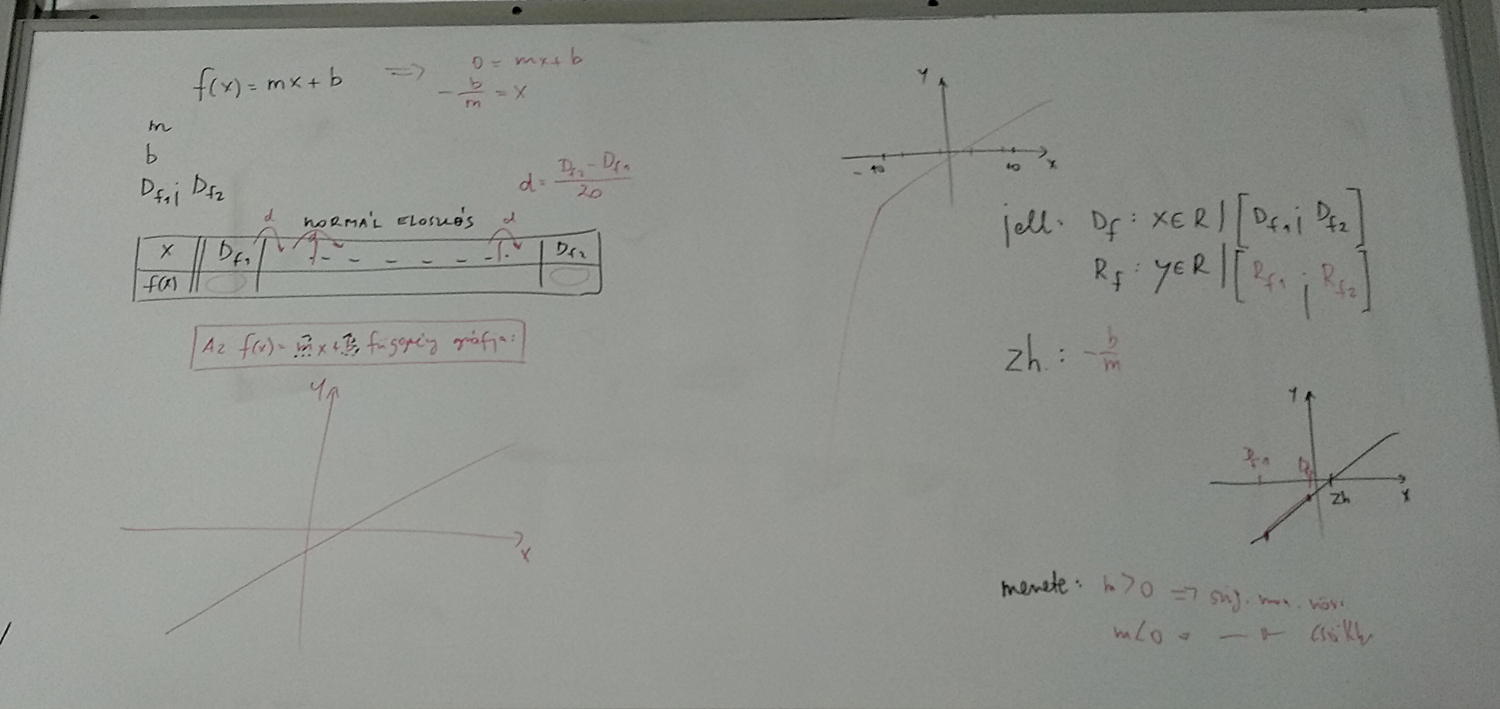 f(x) = mx + b => 0 = mx + b
- b/m = x
m
b
Df1; Df2
d = (Df2 - Df1)/20
d NORMÁL ELOSLÁS d
x Df1 - - - - - - Df2
f(x)
Az f(x) = mx + b függvény gráfja:
y
x
y
-10 10 x
jell. Df: x∈R | [Df1; Df2]
Rf: y∈R | [Rf1; Rf2]
zh: - b/m
y
Df1
zh x
menete: m>0 => szig. mon. növ.
m<0